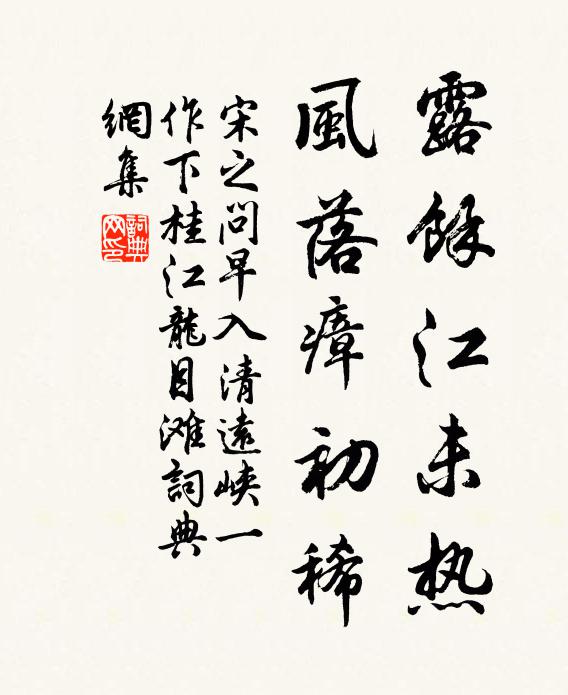 露餘江未热
風落瘴初稀
宋之問早入清遠峽一
作下桂江龍目滩詞典
網集
詞典网印